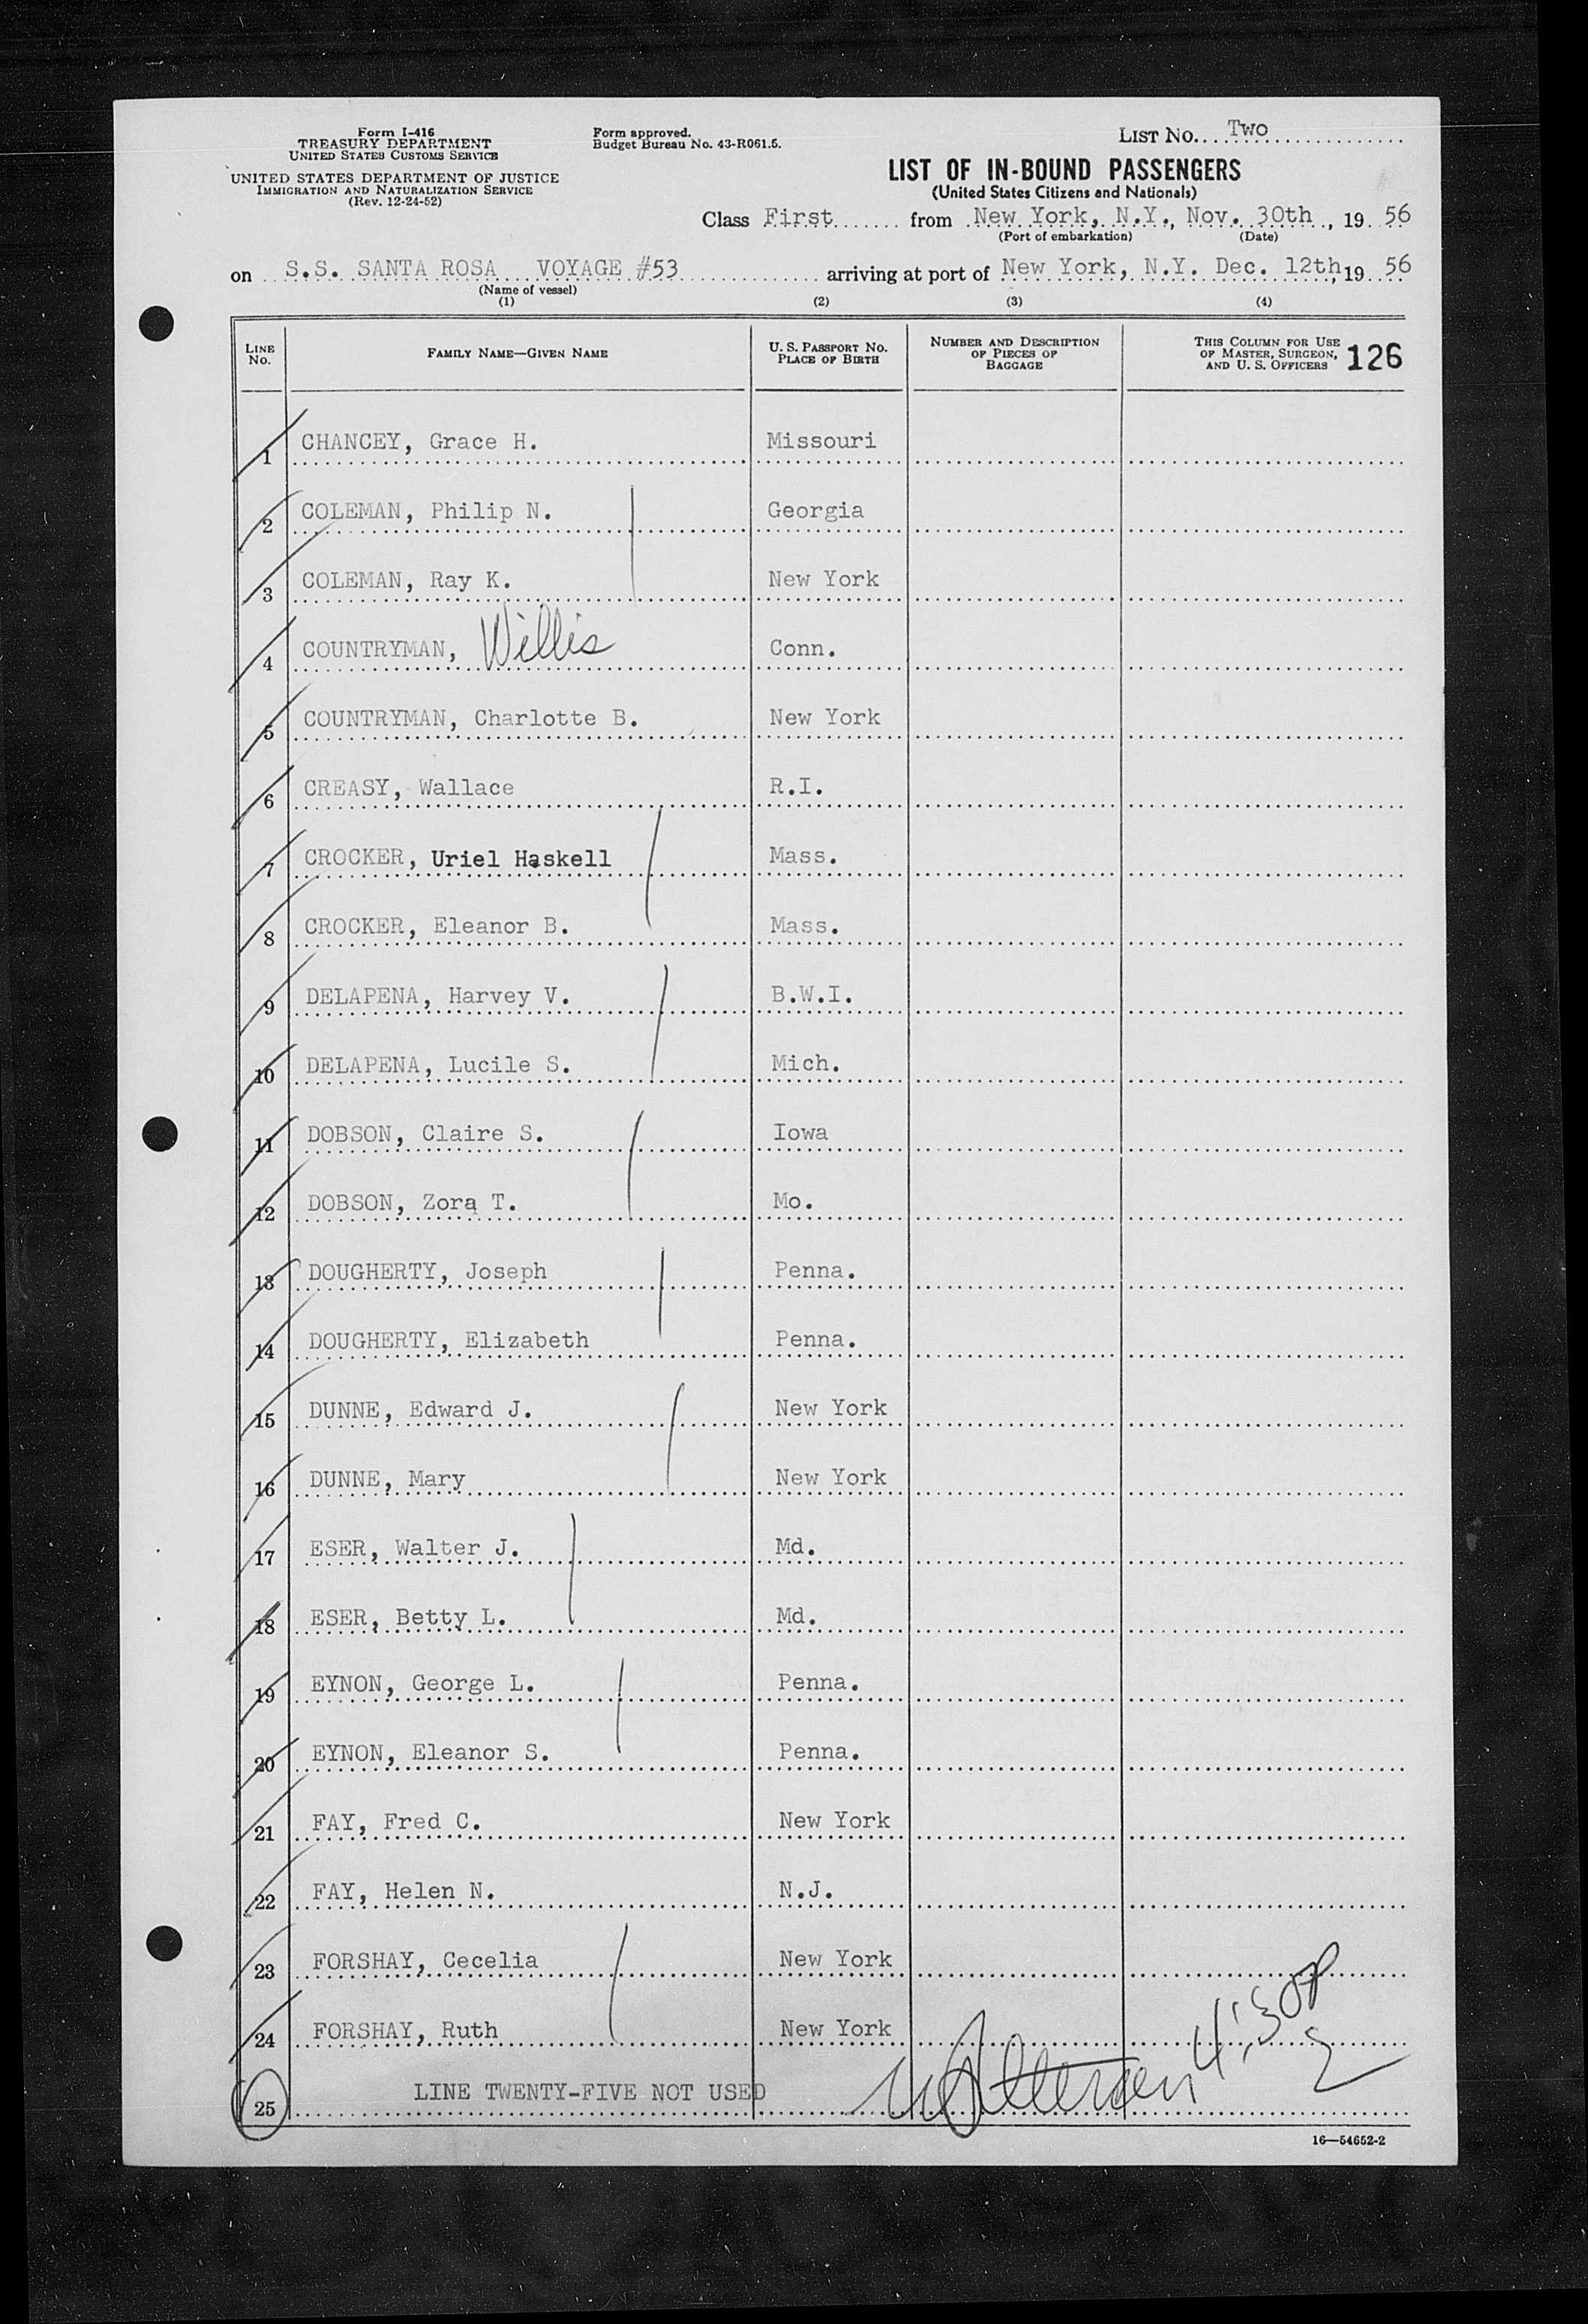 Form I-416
TREASURY DEPARTMENT
UNITED STATES CUSTOMS SERVICE
UNITED STATES DEPARTMENT OF JUSTICE
IMMIGRATION AND NATURALIZATION SERVICE
(Rev. 12-24-52)
Form approved.
Budget Bureau No. 43-R061.5.
LIST NO. Two
LIST OF IN-BOUND PASSENGERS
(United States Citizens and Nationals)
Class First from New York, N.Y., Nov. 30th, 19 56
(Port of embarkation) (Date)
on S.S. SANTA ROSA VOYAGE #53 arriving at port of New York, N.Y. Dec. 12th, 19 56
(Name of vessel)
(1) (2) (3) (4)
LINE NO. FAMILY NAME—GIVEN NAME U. S. PASSPORT NO. PLACE OF BIRTH NUMBER AND DESCRIPTION OF PIECES OF BAGGAGE THIS COLUMN FOR USE OF MASTER, SURGEON, AND U. S. OFFICERS 126
1 CHANCEY, Grace H. Missouri
2 COLEMAN, Philip N. Georgia
3 COLEMAN, Ray K. New York
4 COUNTRYMAN, Willis Conn.
5 COUNTRYMAN, Charlotte B. New York
6 CREASY, Wallace R.I.
7 CROCKER, Uriel Haskell Mass.
8 CROCKER, Eleanor B. Mass.
9 DELAPENA, Harvey V. B.W.I.
10 DELAPENA, Lucile S. Mich.
11 DOBSON, Claire S. Iowa
12 DOBSON, Zora T. Mo.
13 DOUGHERTY, Joseph Penna.
14 DOUGHERTY, Elizabeth Penna.
15 DUNNE, Edward J. New York
16 DUNNE, Mary New York
17 ESER, Walter J. Md.
18 ESER, Betty L. Md.
19 EYNON, George L. Penna.
20 EYNON, Eleanor S. Penna.
21 FAY, Fred C. New York
22 FAY, Helen N. N.J.
23 FORSHAY, Cecelia New York
24 FORSHAY, Ruth New York
4:30P
2
25 LINE TWENTY-FIVE NOT USED
16—54652-2